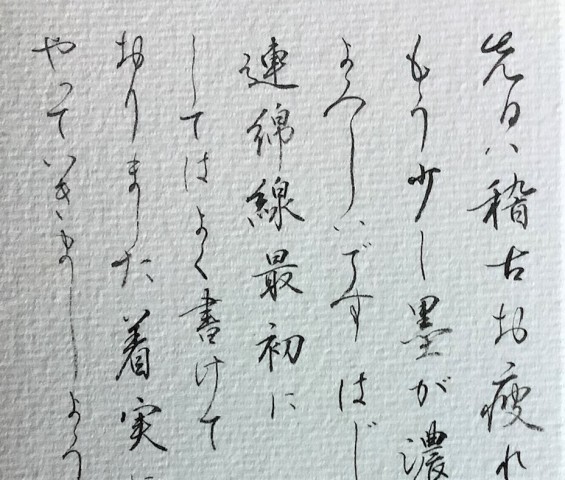 先日は稽古お疲れ
もう少し墨が濃
よろしいです はじ
連綿線最初に
してはよく書けて
おりました 着実に
やっていきましょう